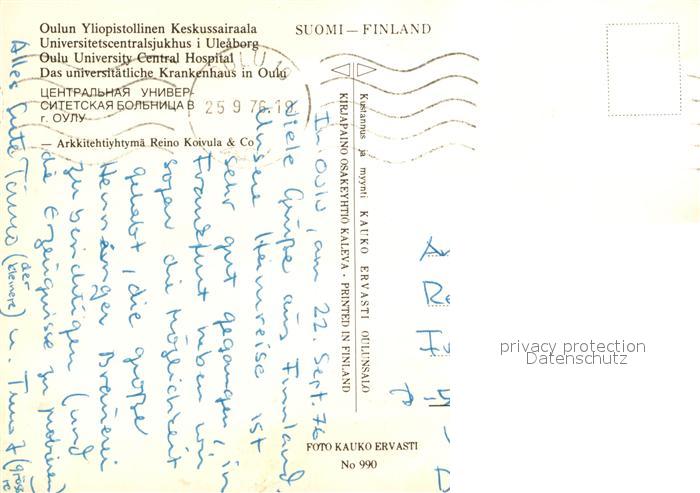 Oulun Yliopistollinen Keskussairaala
Universitetscentralsjukhus i Uleåborg
Oulu University Central Hospital
Das universitätliche Krankenhaus in Oulu
ЦЕНТРАЛЬНАЯ УНИВЕР-
СИТЕТСКАЯ БОЛЬНИЦА В
г. ОУЛУ
— Arkkitehtiyhtymä Reino Koivula & Co
SUOMI — FINLAND
OULU
25 9 76
Kustannus ja myynti KAUKO ERVASTI OULUNSALO
KIRJAPAINO OSAKEYHTIO KALEVA · PRINTED IN FINLAND
In Oulu, am 22. Sept. 76
Viele Grüße aus Finnland.
Unsere Heimreise ist
sehr gut gegangen, in
Frankfurt haben wir
sogar die Möglichkeit
gehabt, die große
Henninger Brauerei
zu besichtigen (und
die Erzeugnisse zu probieren)
Alles Gute
Timo (der kleinere) u. Timo
FOTO KAUKO ERVASTI
No 990
privacy protection
Datenschutz